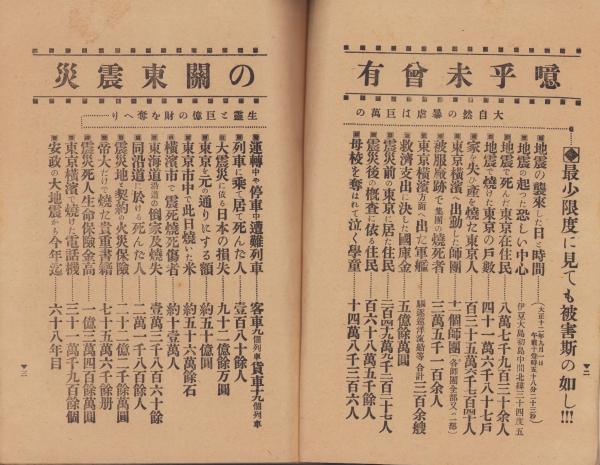 噫乎未曾有
の關東震災
大自然の暴虐は巨萬の
生靈と巨億の財を奪へり
◆最少限度に見ても被害斯の如し!!!
地震の襲來した日と時間 (大正十二年九月一日午前十一時五十八分二十三秒)
地震の起つた恐しい中心 伊豆大島初島中間北緯三十四度五
地震で死んだ東京在住民 八萬七千九百三十餘人
地震で燒けた東京の戸數 四十一萬六千八十七戸
家を失ひ產を燒た東京人 百三十五萬六千七百四十人
東京横濱へ出動した師團 十一個師團(各師團全部又ハ一部)
被服廠跡で集團の燒死者 三萬三千百餘人
東京横濱方面へ出た軍艦 驅逐巡洋流船等合計 三百餘艘
救濟支出に決した國庫金 五億餘萬圓
震災前の東京に居た住民 二百四十九萬九千三百二十七人
震災後の概査に依る住民 百六十八萬五千餘人
母校を奪はれて泣く學童 十四萬八千三百六人
運轉中や停車中遭難列車 客車九個列車貨車十九個列車
列車に乘て居て死んだ人 壹百八十餘人
大震災に依る日本の損失 九十二億餘万圓
東京を元の通りにする額 約五十億圓
東京市中で此日燒いた米 約五十六萬餘石
横濱市で震死燒死傷者 約十壹萬人
東海道沿道の倒家及燒失 壹萬三千八百六十餘
同沿道に於ける死んだ人 二萬一千八百餘人
震災地と契約の火災保險 二十二億二千餘萬圓
帝大だけで燒た貴重書籍 七十五萬六千餘册
震災死人生命保險金高 一億三千四百餘萬圓
東京横濱で燒けた電話機 三十一萬千九百餘個
安政の大地震から今年迄 六十八年目
二
三